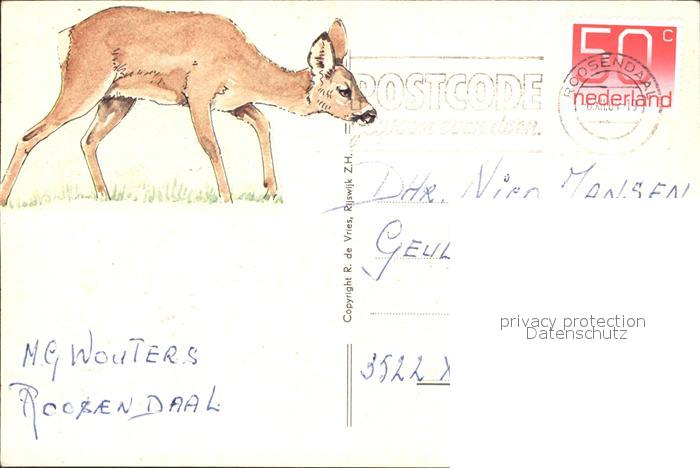 50 C
nederland
ROOSENDAAL
POSTCODE
gewoon even doen.
Copyright R. de Vries, Rijswijk Z.H.
DHR. NICO JANSEN
GEUL
3522 X
privacy protection
Datenschutz
MG WOUTERS
ROOSENDAAL